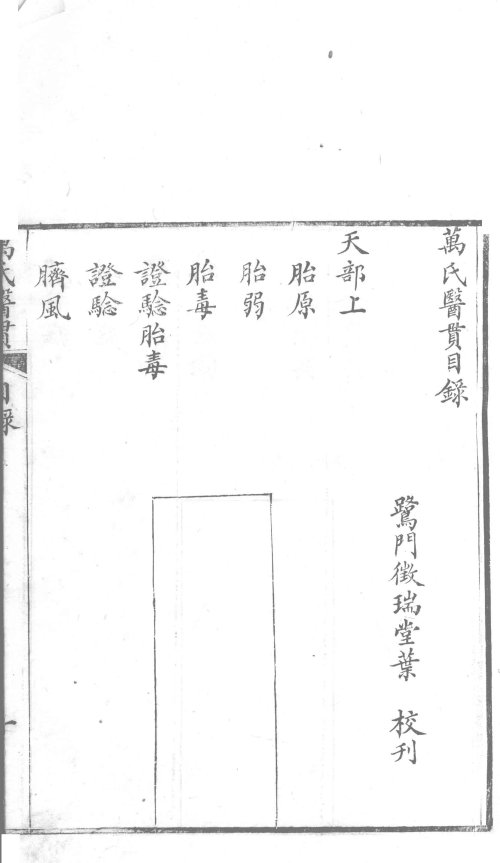 萬氏醫貫目錄
鷺門徵瑞堂葉　校刊
天部上
胎原
胎弱
胎毒
證騐胎毒
證騐
臍風
萬氏醫貫
目錄
一